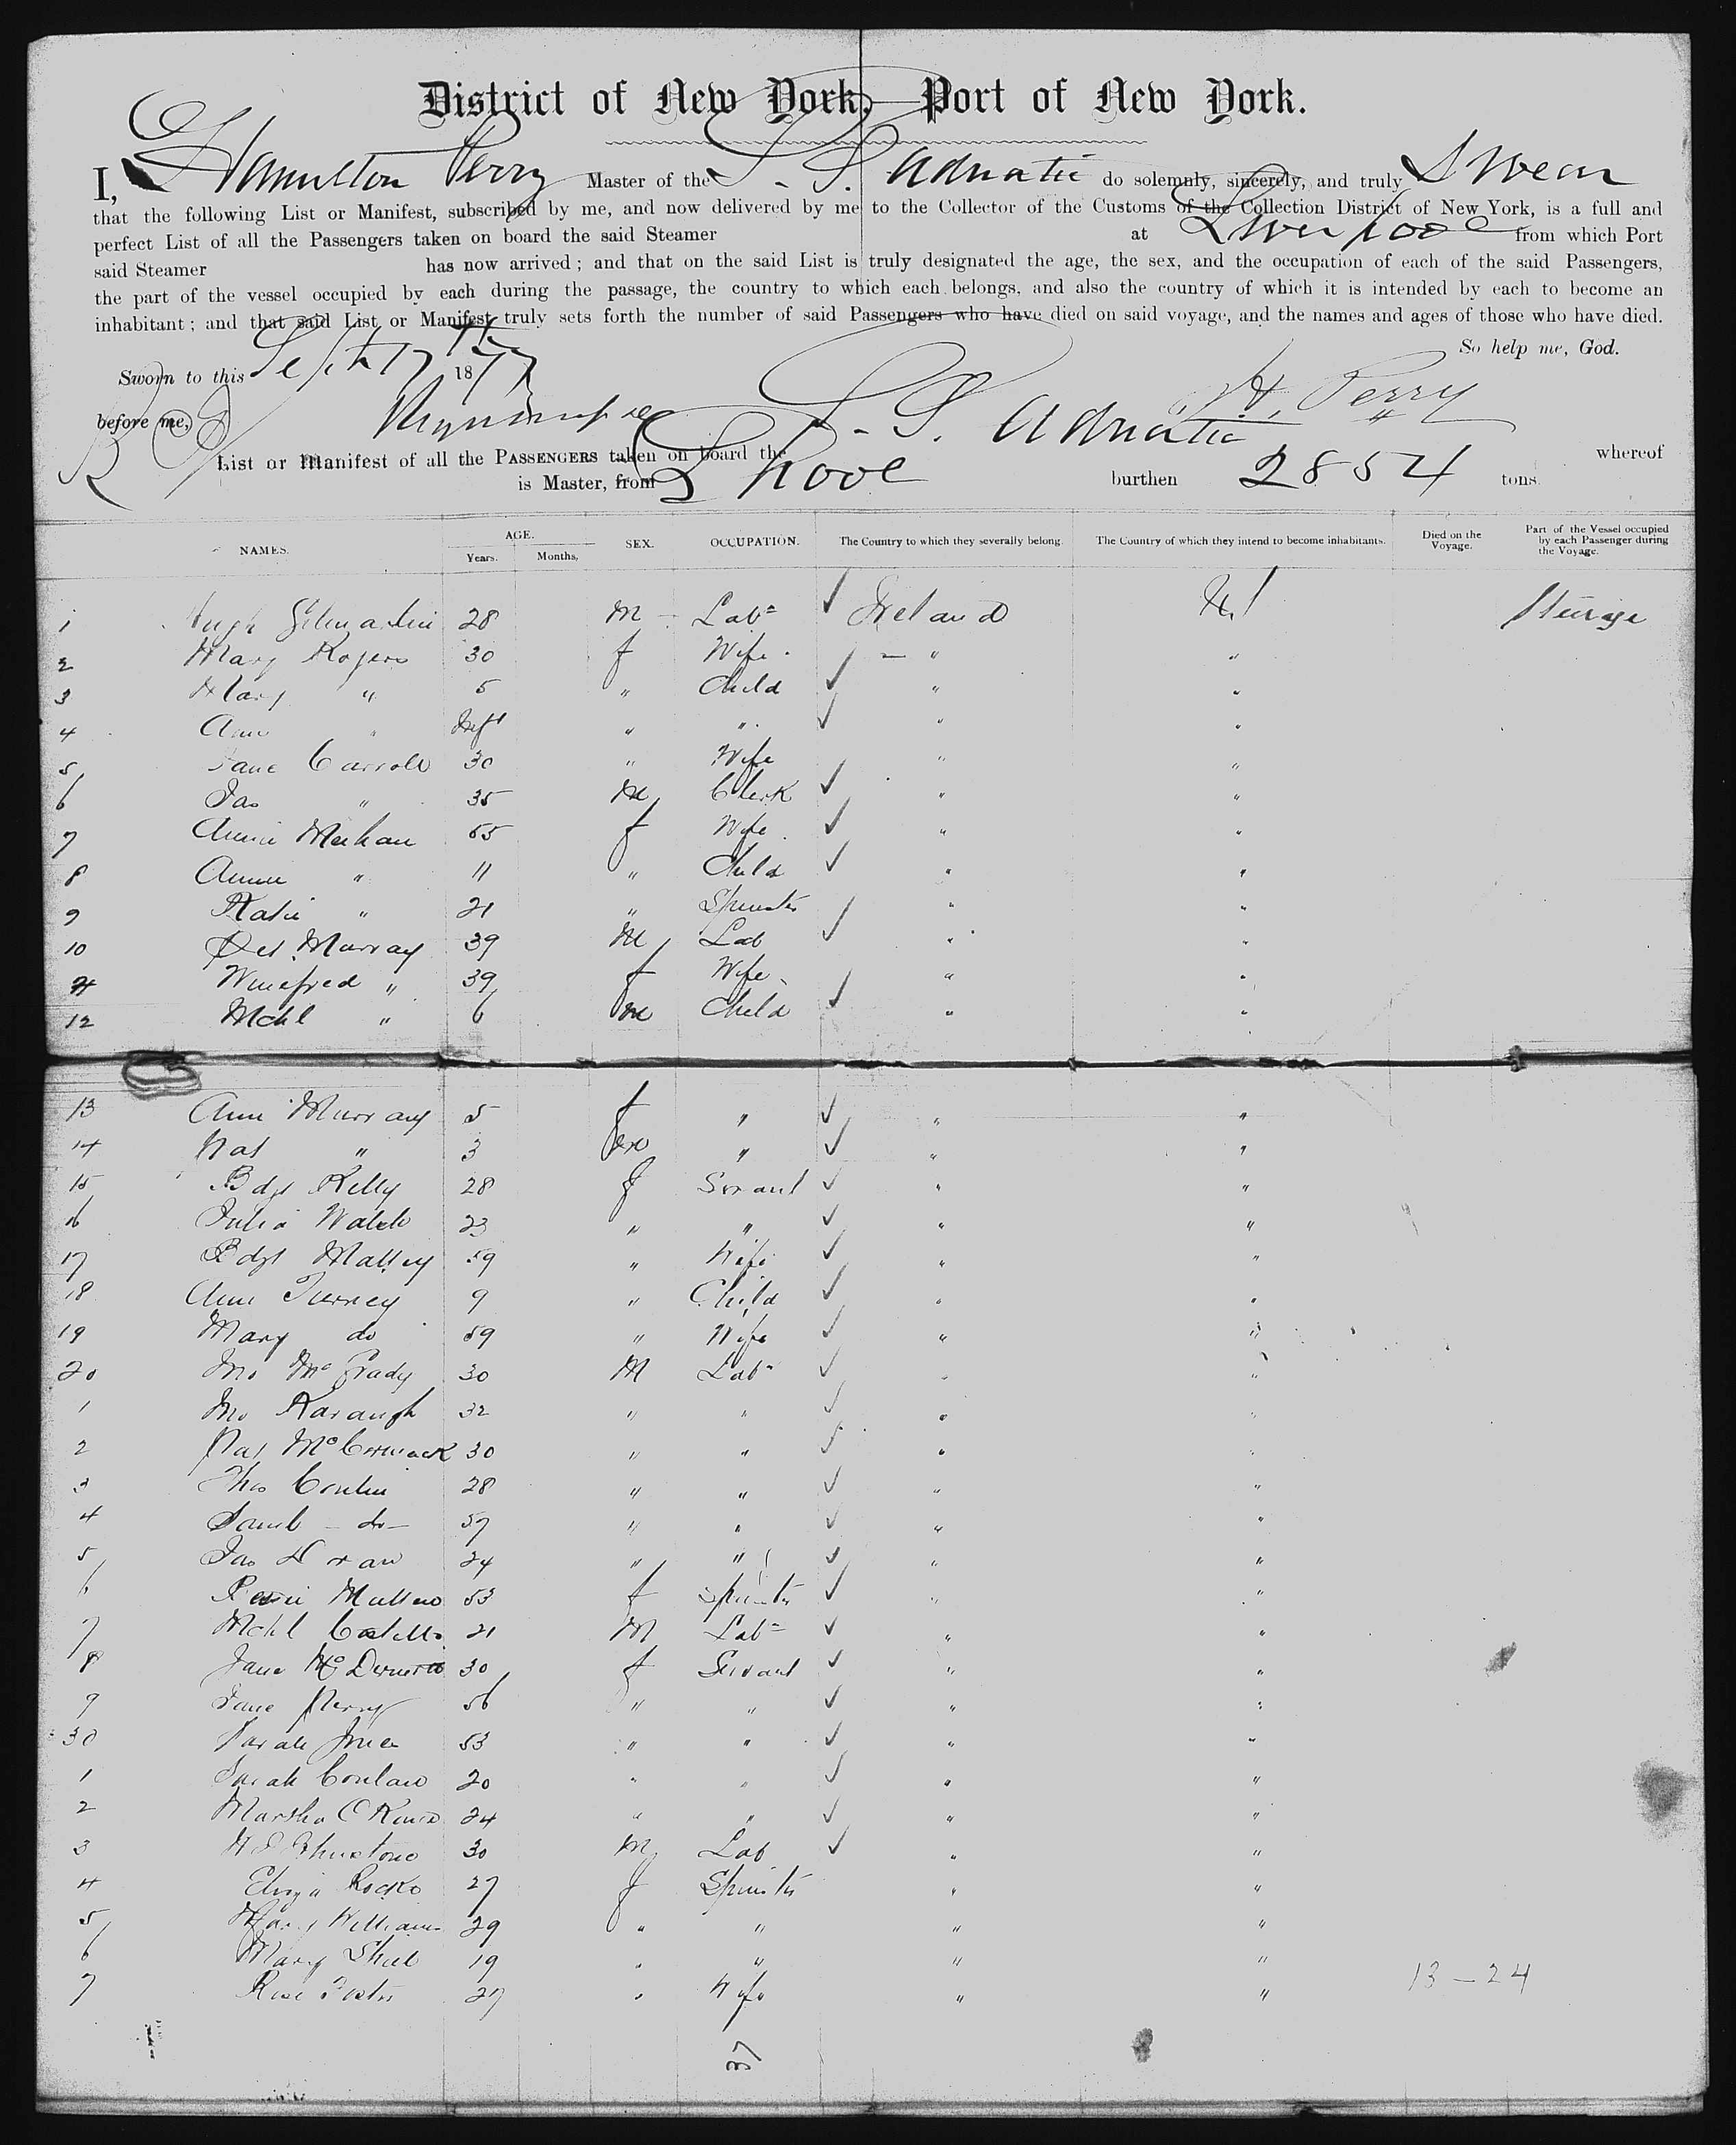 District of New York, Port of New York.
I, Hamilton Perry Master of the S. S. Adriatic do solemnly, sincerely, and truly Swear
that the following List or Manifest, subscribed by me, and now delivered by me to the Collector of the Customs of the Collection District of New York, is a full and
perfect List of all the Passengers taken on board the said Steamer at Liverpool from which Port
said Steamer has now arrived; and that on the said List is truly designated the age, the sex, and the occupation of each of the said Passengers,
the part of the vessel occupied by each during the passage, the country to which each belongs, and also the country of which it is intended by each to become an
inhabitant; and that said List or Manifest truly sets forth the number of said Passengers who have died on said voyage, and the names and ages of those who have died.
So help me, God.
Sworn to this Sept 17 1877
before me, H. Perry
List or Manifest of all the PASSENGERS taken on board the S. S. Adriatic whereof
is Master, from L'pool burthen 2854 tons.
NAMES. AGE. Years. Months, SEX. OCCUPATION. The Country to which they severally belong. The Country of which they intend to become inhabitants. Died on the Voyage. Part of the Vessel occupied by each Passenger during the Voyage.
1 Hugh Gilmartin 28 M Labr ✓ Ireland Steerage
2 Mary Rogers 30 f Wife ✓ " "
3 Mary " 5 " Child ✓ " "
4 Ann " Inft " " ✓ " "
5 Jane Carroll 30 " Wife " "
6 Jas " 35 M Clerk ✓ " "
7 Annie Meehan 55 f Wife ✓ " "
8 Annie " 11 " Child ✓ " "
9 Katie " 21 " Spinster " "
10 Murray 39 M Lab ✓ " "
11 Winefred " 39 f Wife " "
12 Mchl " 6 m Child ✓ " "
13 Ann Murray 5 f " ✓ " "
14 Pat " 3 m " ✓ " "
15 Bdgt Kelly 28 f Servant ✓ " "
16 Julia Walsh 23 " " ✓ " "
17 Bdgt Malley 59 " Wife ✓ " "
18 Ann Tierney 9 " Child ✓ " "
19 Mary do 59 " Wife ✓ " "
20 Jno McGrady 30 M Labr ✓ " "
1 Jno Kavangh 32 " " ✓ " "
2 Pat McCormack 30 " " ✓ " "
3 Thos Conlin 28 " " ✓ " "
4 - do - 57 " " ✓ " "
5 Jas Doran 24 " " ✓ " "
6 Mullen 53 f Spinster ✓ " "
7 Mchl Costello 21 M Labr ✓ " "
8 Jane McDermott 30 f Servant ✓ " "
9 Jane Perry 56 " " ✓ " "
30 Sarah 53 " " ✓ " "
1 Sarah Conlan 20 " " ✓ " "
2 Martha 24 " " ✓ " "
3 Johnstone 30 M Lab ✓ " "
4 Eliza 27 f Spinster " "
5 Mary Williams 29 " " " "
6 Mary 19 " " " "
7 Rose Foster 27 " Wife " "
13 - 24
37